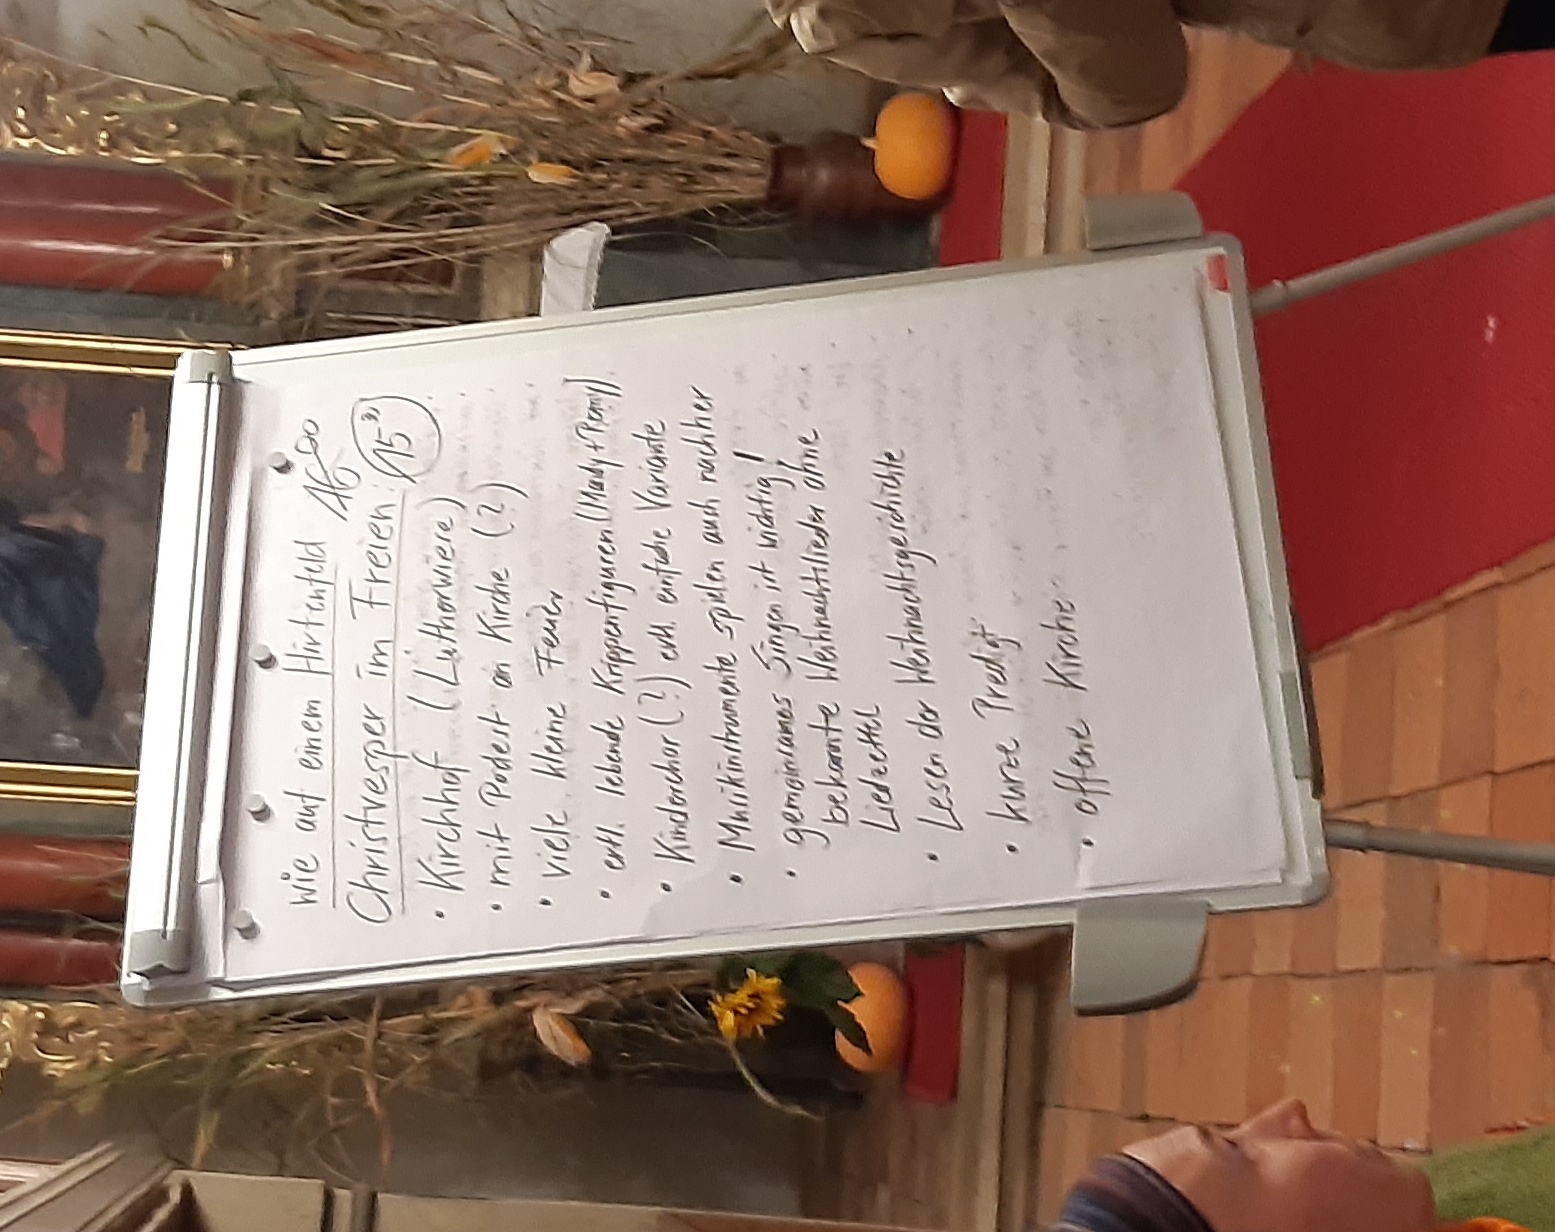 wie auf einem Hirtenfeld 16⁰⁰
Christvesper im Freien 15³⁰
• Kirchhof (Lutherwiere)
• mit Podest an Kirche (?)
• viele kleine Feuer
• evtl. lebende Krippenfiguren (Mandy +
• Kinderchor (?) evtl. einfache Variante
• Musikinstrumente spielen auch nachher
• gemeinsames Singen ist wichtig!
bekannte Weihnachtslieder ohne
Liedzettel
• Lesen der Weihnachtsgeschichte
• kurze Predigt
• offene Kirche